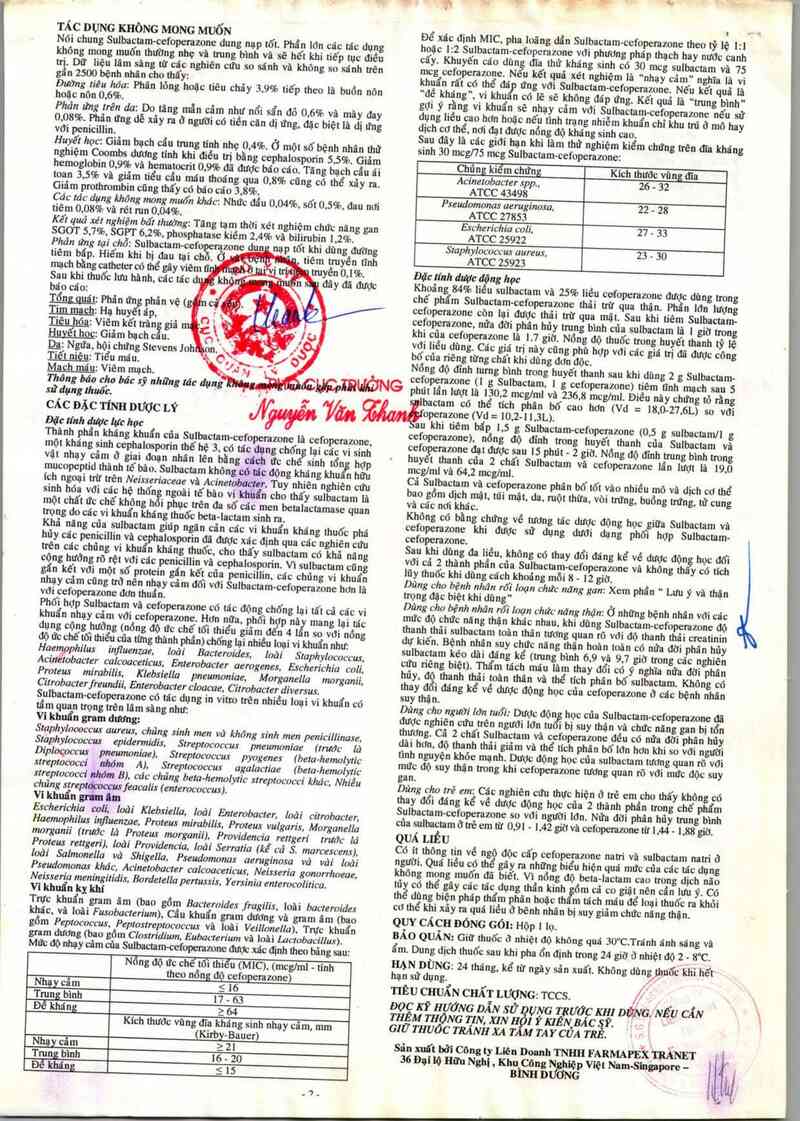 TÁC DỤNG KHÔNG MONG MUỐN
Nói chung Sulbactam-cefoperazone dung nạp tốt. Phần lớn các tác dụng
không mong muốn thường nhẹ và trung bình và sẽ hết khi tiếp tục điều
trị. Dữ liệu lâm sàng từ các nghiên cứu so sánh và không so sánh trên
gần 2500 bệnh nhân cho thấy:
Đường tiêu hóa: Phân lỏng hoặc tiêu chảy 3,9% tiếp theo là buồn nôn
hoặc nôn 0,6%.
Phản ứng trên da: Do tăng mẫn cảm như nổi sẩn đỏ 0,6% và mày đay
0,08%. Phản ứng dễ xảy ra ở người có tiền căn dị ứng, đặc biệt là dị ứng
với penicillin.
Huyết học: Giảm bạch cầu trung tính nhẹ 0,4%. Ở một số bệnh nhân thử
nghiệm Coombs dương tính khi điều trị bằng cephalosporin 5,5%. Giảm
hemoglobin 0,9% và hematocrit 0,9% đã được báo cáo. Tăng bạch cầu ái
toan 3,5% và giảm tiểu cầu máu thoáng qua 0,8% cũng có thể xảy ra.
Giảm prothrombin cũng thấy có báo cáo 3,8%.
Các tác dụng không mong muốn khác: Nhức đầu 0,04%, sốt 0,5%, đau nơi
tiêm 0,08% và rét run 0,04%.
Kết quả xét nghiệm bất thường: Tăng tạm thời xét nghiệm chức năng gan
SGOT 5,7%, SGPT 6,2%, phosphatase kiềm 2,4% và bilirubin 1,2%.
Phản ứng tại chỗ: Sulbactam-cefoperazone dung nạp tốt khi dùng đường
tiêm bắp. Hiếm khi bị đau tại chỗ. Ở vài bệnh nhân, tiêm truyền tĩnh
mạch bằng catheter có thể gây viêm tĩnh mạch ở tại vị trí tiêm truyền 0,1%.
Sau khi thuốc lưu hành, các tác dụng không mong muốn sau đây đã được
báo cáo:
Tổng quát: Phản ứng phản vệ (gồm cả sốc).
Tim mạch: Hạ huyết áp,
Tiêu hóa: Viêm kết tràng giả mạc
Huyết học: Giảm bạch cầu.
Da: Ngứa, hội chứng Stevens Johnson.
Tiết niệu: Tiểu máu.
Mạch máu: Viêm mạch.
Thông báo cho bác sỹ những tác dụng không mong muốn gặp phải khi
sử dụng thuốc.
CỤC QUẢN LÝ DƯỢC
TRƯỞNG
Nguyễn Văn Thanh
CÁC ĐẶC TÍNH DƯỢC LÝ
Đặc tính dược lực học
Thành phần kháng khuẩn của Sulbactam-cefoperazone là cefoperazone,
một kháng sinh cephalosporin thế hệ 3, có tác dụng chống lại các vi sinh
vật nhạy cảm ở giai đoạn nhân lên bằng cách ức chế sinh tổng hợp
mucopeptid thành tế bào. Sulbactam không có tác động kháng khuẩn hữu
ích ngoại trừ trên Neisseriaceae và Acinetobacter. Tuy nhiên nghiên cứu
sinh hóa với các hệ thống ngoài tế bào vi khuẩn cho thấy sulbactam là
một chất ức chế không hồi phục trên đa số các men betalactamase quan
trọng do các vi khuẩn kháng thuốc beta-lactam sinh ra.
Khả năng của sulbactam giúp ngăn cản các vi khuẩn kháng thuốc phá
hủy các penicillin và cephalosporin đã được xác định qua các nghiên cứu
trên các chủng vi khuẩn kháng thuốc, cho thấy sulbactam có khả năng
cộng hưởng rõ rệt với các penicillin và cephalosporin. Vì sulbactam cũng
gắn kết với một số protein gắn kết của penicillin, các chủng vi khuẩn
nhạy cảm cũng trở nên nhạy cảm đối với Sulbactam-cefoperazone hơn là
với cefoperazone đơn thuần.
Phối hợp Sulbactam và cefoperazone có tác động chống lại tất cả các vi
khuẩn nhạy cảm với cefoperazone. Hơn nữa, phối hợp này mang lại tác
dụng cộng hưởng (nồng độ ức chế tối thiểu giảm đến 4 lần so với nồng
độ ức chế tối thiểu của từng thành phần) chống lại nhiều loại vi khuẩn như:
Haemophilus influenzae, loài Bacteroides, loài Staphylococcus,
Acinetobacter calcoaceticus, Enterobacter aerogenes, Escherichia coli,
Proteus mirabilis, Klebsiella pneumoniae, Morganella morganii,
Citrobacter freundii, Enterobacter cloacae, Citrobacter diversus.
Sulbactam-cefoperazone có tác dụng in vitro trên nhiều loại vi khuẩn có
tầm quan trọng trên lâm sàng như:
Vi khuẩn gram dương:
Staphylococcus aureus, chủng sinh men và không sinh men penicillinase,
Staphylococcus epidermidis, Streptococcus pneumoniae (trước là
Diplococcus pneumoniae), Streptococcus pyogenes (beta-hemolytic
streptococci nhóm A), Streptococcus agalactiae (beta-hemolytic
streptococci nhóm B), các chủng beta-hemolytic streptococci khác, Nhiều
chủng streptococcus feacalis (enterococcus).
Vi khuẩn gram âm
Escherichia coli, loài Klebsiella, loài Enterobacter, loài citrobacter,
Haemophilus influenzae, Proteus mirabilis, Proteus vulgaris, Morganella
morganii (trước là Proteus morganii), Providencia rettgeri trước là
Proteus rettgeri), loài Providencia, loài Serratia (kể cả S. marcescens),
loài Salmonella và Shigella, Pseudomonas aeruginosa và vài loài
Pseudomonas khác, Acinetobacter calcoaceticus, Neisseria gonorrhoeae,
Neisseria meningitidis, Bordetella pertussis, Yersinia enterocolitica.
Vi khuẩn kỵ khí
Trực khuẩn gram âm (bao gồm Bacteroides fragilis, loài bacteroides
khác, và loài Fusobacterium), Cầu khuẩn gram dương và gram âm (bao
gồm Peptococcus, Peptostreptococcus và loài Veillonella), Trực khuẩn
gram dương (bao gồm Clostridium, Eubacterium và loài Lactobacillus).
Mức độ nhạy cảm của Sulbactam-cefoperazone được xác định theo bảng sau:
Nồng độ ức chế tối thiểu (MIC), (mcg/ml - tính
theo nồng độ cefoperazone)
Nhạy cảm ≤ 16
Trung bình 17 - 63
Đề kháng ≥ 64
Kích thước vũng đĩa kháng sinh nhạy cảm, mm
(Kirby-Bauer)
Nhạy cảm ≥ 21
Trung bình 16 - 20
Đề kháng ≤ 15
- 2 -
Để xác định MIC, pha loãng dần Sulbactam-Cefoperazone theo tỷ lệ 1:1
hoặc 1:2 Sulbactam-cefoperazone với phương pháp thạch hay nước canh
cấy. Khuyến cáo dùng đĩa thử kháng sinh có 30 mcg sulbactam và 75
mcg cefoperazone. Nếu kết quả xét nghiệm là "nhạy cảm" nghĩa là vi
khuẩn rất có thể đáp ứng với Sulbactam-cefoperazone. Nếu kết quả là
"đề kháng", vi khuẩn có lẽ sẽ không đáp ứng. Kết quả là "trung bình"
gợi ý rằng vi khuẩn sẽ nhạy cảm với Sulbactam-cefoperazone nếu sử
dụng liều cao hơn hoặc nếu tình trạng nhiễm khuẩn chỉ khu trú ở mô hay
dịch cơ thể, nơi đạt được nồng độ kháng sinh cao.
Sau đây là các giới hạn khi làm thử nghiệm kiểm chứng trên đĩa kháng
sinh 30 mcg/75 mcg Sulbactam-Cefoperazone:
Chủng kiểm chứng Kích thước vũng đĩa
Acinetobacter spp.,
ATCC 43498 26 - 32
Pseudomonas aeruginosa,
ATCC 27853 22 - 28
Escherichia coli,
ATCC 25922 27 - 33
Staphylococcus aureus,
ATCC 25923 23 - 30
Đặc tính dược động học
Khoảng 84% liều sulbactam và 25% liều cefoperazone được dùng trong
chế phẩm Sulbactam-cefoperazone thải trừ qua thận. Phần lớn lượng
cefoperazone còn lại được thải trừ qua mật. Sau khi tiêm Sulbactam-
cefoperazone, nửa đời phân hủy trung bình của sulbactam là 1 giờ trong
khi của cefoperazone là 1,7 giờ. Nồng độ thuốc trong huyết thanh tỷ lệ
với liều dùng. Các giá trị này cũng phù hợp với các giá trị đã được công
bố của riêng từng chất khi dùng đơn độc.
Nồng độ đỉnh turng bình trong huyết thanh sau khi dùng 2 g Sulbactam-
cefoperazone (1 g Sulbactam, 1 g cefoperazone) tiêm tĩnh mạch sau 5
phút lần lượt là 130,2 mcg/ml và 236,8 mcg/ml. Điều này chứng tỏ rằng
sulbactam có thể tích phân bố cao hơn (Vd = 18,0-27,6L) so với
cefoperazone (Vd = 10,2-11,3L).
Sau khi tiêm bắp 1,5 g Sulbactam-Cefoperazone (0,5 g sulbactam/1 g
cefoperazone), nồng độ đỉnh trong huyết thanh của Sulbactam và
cefoperazone đạt được sau 15 phút - 2 giờ. Nồng độ đỉnh trung bình trong
huyết thanh của 2 chất Sulbactam và Cefoperazone lần lượt là 19,0
mcg/ml và 64,2 mcg/ml.
Cả Sulbactam và cefoperazone phân bố tốt vào nhiều mô và dịch cơ thể
bao gồm dịch mật, túi mật, da, ruột thừa, vòi trứng, buồng trứng, tử cung
và các nơi khác.
Không có bằng chứng về tương tác dược động học giữa Sulbactam và
cefoperazone khi được sử dụng dưới dạng phối hợp Sulbactam-
cefoperazone.
Sau khi dùng đa liều, không có thay đổi đáng kể về dược động học đối
với cả 2 thành phần của Sulbactam-cefoperazone và không thấy có tích
lũy thuốc khi dùng cách khoảng mỗi 8 - 12 giờ.
Dùng cho bệnh nhân rối loạn chức năng gan: Xem phần " Lưu ý và thận
trọng đặc biệt khi dùng"
Dùng cho bệnh nhân rối loạn chức năng thận: Ở những bệnh nhân với các
mức độ chức năng thận khác nhau, khi dùng Sulbactam-cefoperazone độ
thanh thải sulbactam toàn thân tương quan rõ với độ thanh thải creatinin
dự kiến. Bệnh nhân suy chức năng thận hoàn toàn có nửa đời phân hủy
sulbactam kéo dài đáng kể (trung bình 6,9 và 9,7 giờ trong các nghiên
cứu riêng biệt). Thẩm tách máu làm thay đổi có ý nghĩa nửa đời phân
hủy, độ thanh thải toàn thân và thể tích phân bố sulbactam. Không có
thay đổi đáng kể về dược động học của cefoperazone ở các bệnh nhân
suy thận.
Dùng cho người lớn tuổi: Dược động học của Sulbactam-cefoperazone đã
được nghiên cứu trên người lớn tuổi bị suy thận và chức năng gan bị tổn
thương. Cả 2 chất Sulbactam và cefoperazone đều có nửa đời phân hủy
dài hơn, độ thanh thải giảm và thể tích phân bố lớn hơn khi so với người
tình nguyện khỏe mạnh. Dược động học của sulbactam tương quan rõ với
mức độ suy thận trong khi cefoperazone tương quan rõ với mức độc suy
gan.
Dùng cho trẻ em: Các nghiên cứu thực hiện ở trẻ em cho thấy không có
thay đổi đáng kể về dược động học của 2 thành phần trong chế phẩm
Sulbactam-cefoperazone so với người lớn. Nửa đời phân hủy trung bình
của sulbactam ở trẻ em từ 0,91 - 1,42 giờ và cefoperazone từ 1,44 - 1,88 giờ.
QUÁ LIỀU
Có ít thông tin về ngộ độc cấp cefoperazon natri và sulbactam natri ở
người. Quá liều có thể gây ra những biểu hiện quá mức của các tác dụng
không mong muốn đã biết. Vì nồng độ beta-lactam cao trong dịch não
tủy có thể gây các tác dụng thần kinh gồm cả co giật nên cần lưu ý. Có
thể dùng biện pháp thẩm phân hoặc thẩm tách máu để loại thuốc ra khỏi
cơ thể khi xảy ra quá liều ở bệnh nhân bị suy giảm chức năng thận.
QUY CÁCH ĐÓNG GÓI: Hộp 1 lọ.
BẢO QUẢN: Giữ thuốc ở nhiệt độ không quá 30ºC.Tránh ánh sáng và
ẩm. Dung dịch thuốc sau khi pha ổn định trong 24 giờ ở nhiệt độ 2 - 8ºC.
HẠN DÙNG: 24 tháng, kể từ ngày sản xuất. Không dùng thuốc khi hết
hạn sử dụng.
TIÊU CHUẨN CHẤT LƯỢNG: TCCS.
ĐỌC KỸ HƯỚNG DẪN SỬ DỤNG TRƯỚC KHI DÙNG. NẾU CẦN
THÊM THÔNG TIN, XIN HỎI Ý KIẾN BÁC SỸ.
GIỮ THUỐC TRÁNH XA TẦM TAY CỦA TRẺ.
Sản xuất bởi Công ty Liên Doanh TNHH FARMAPEX TRANET
36 Đại lộ Hữu Nghị , Khu Công Nghiệp Việt Nam-Singapore –
BÌNH DƯƠNG